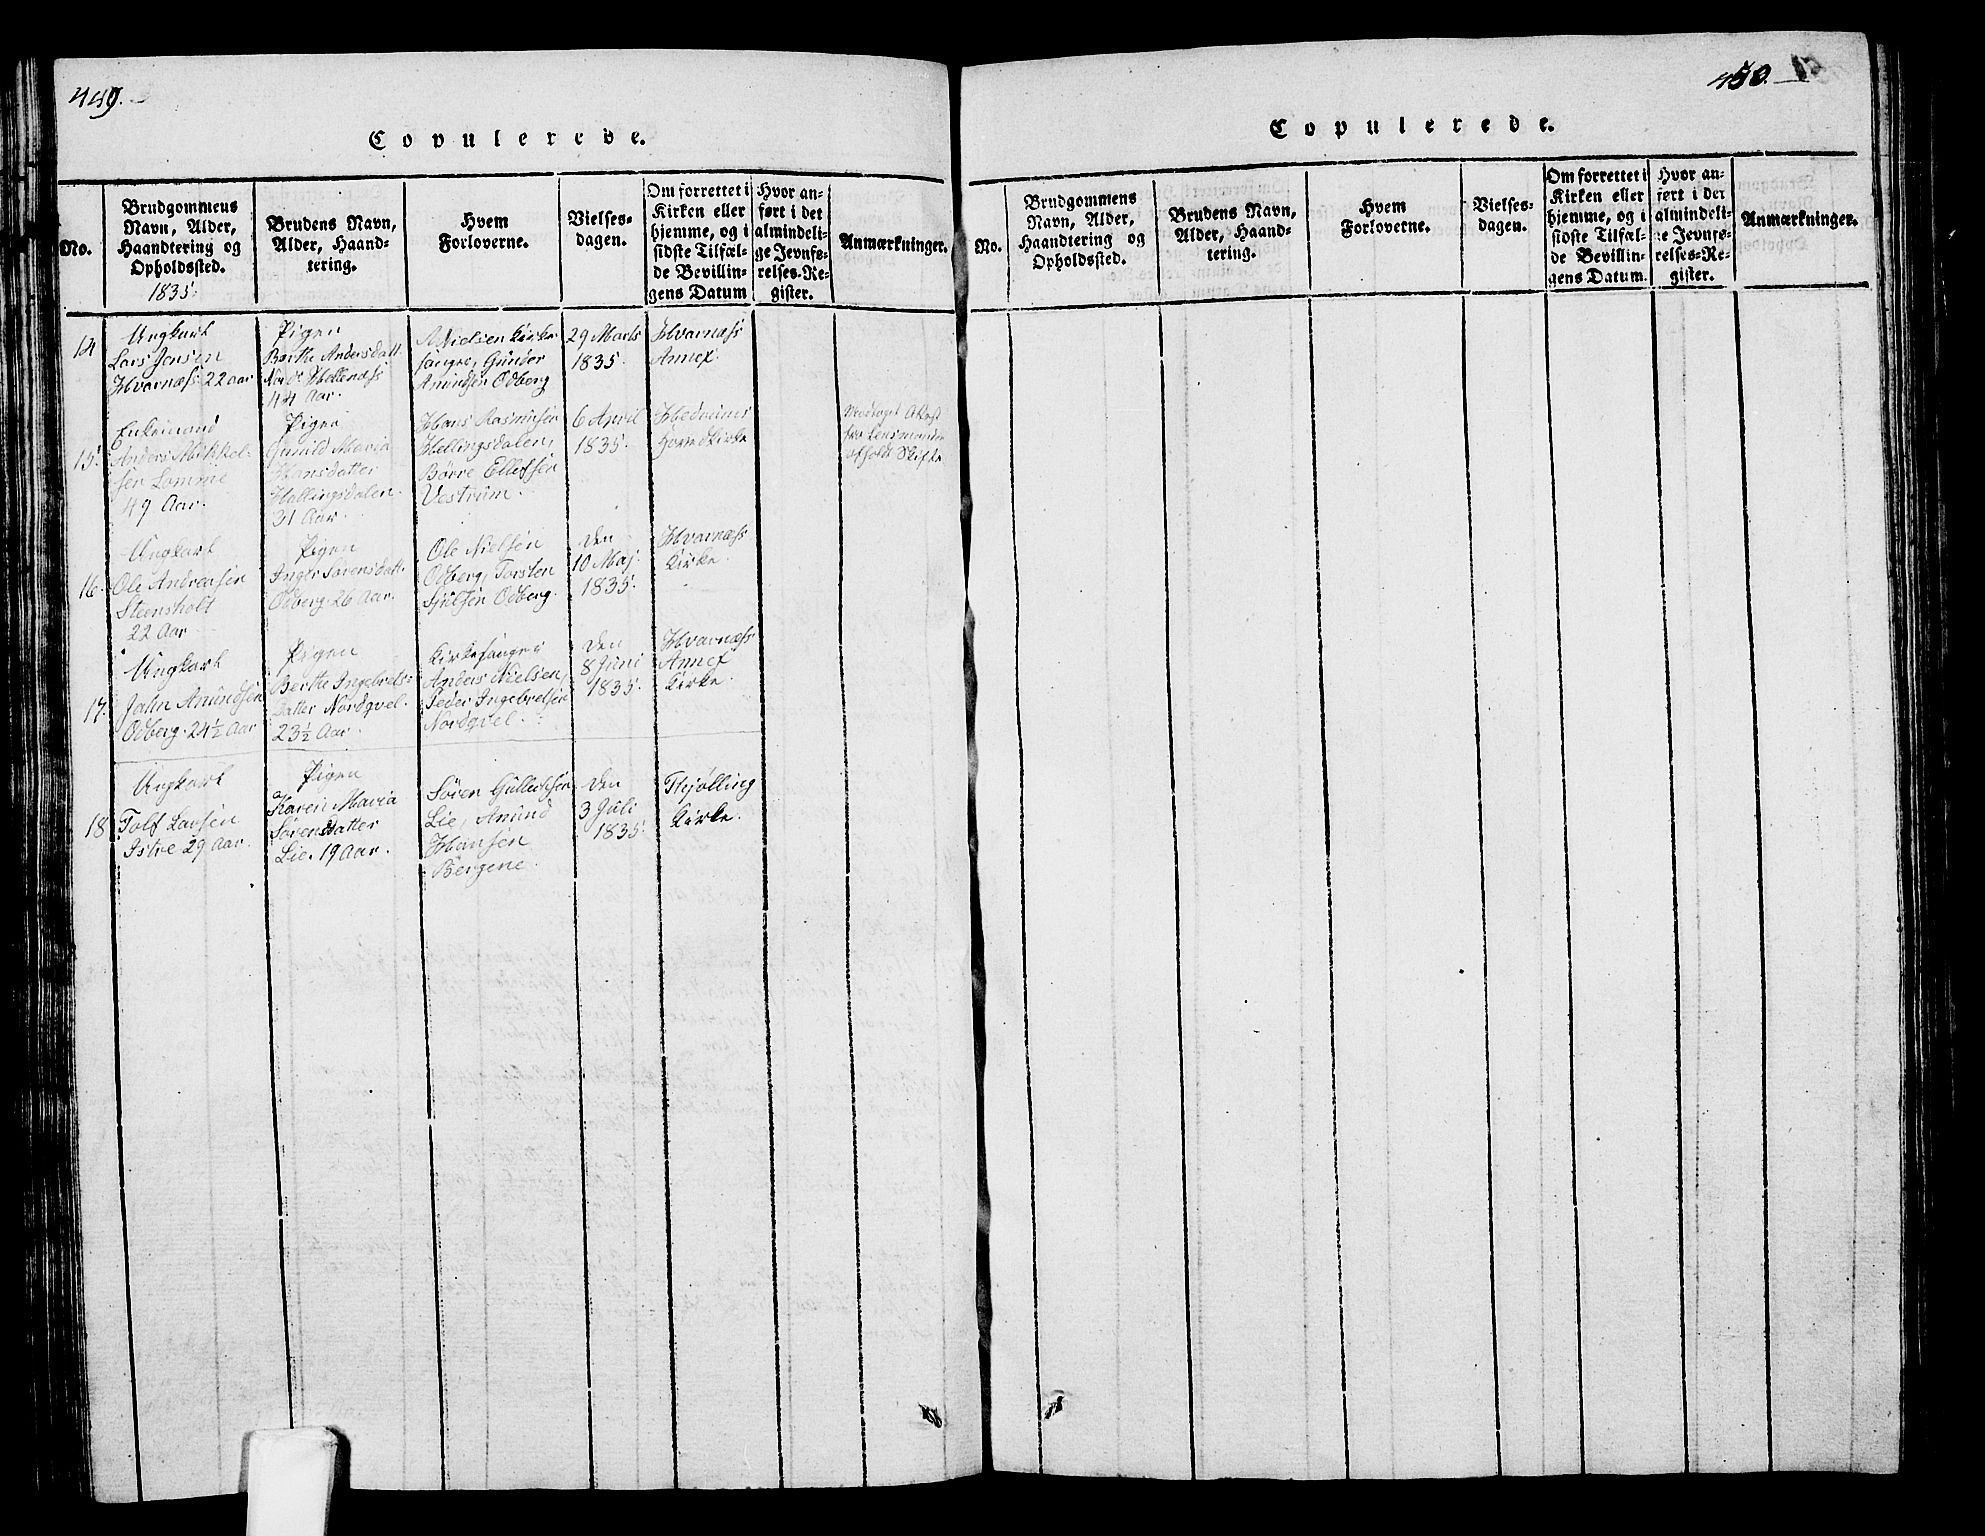 449.
Copulerede.
No.
Brudgommens
Navn, Alder,
Haandtering og
Opholdssted.
1835.
Brudens Navn,
Alder, Haand-
tering.
Hvem
Forloverne.
Vielses-
dagen.
Om forrettet i
Kirken eller
hjemme, og i
sidste Tilfæl-
de Bevillin-
gens Datum
Hvor an-
ført i det
almindeli-
ge Jevnfø-
relses-Re-
gister.
Anmærkninger.
14
Ungkarl
Lars Jensen
Hvarnæss 22 aar
Pigen
Berthe Andersdatt.
44 Aar.
Nielsen Kirke
sanger, Gunder
Amundsen Odberg
29 Marts
1835.
Hvarnæss
Annex.
15.
Enkemand
Anders Mikkel-
sen Lomme
49 Aar.
Pigen
Gunild Maria
Hansdatter
Hallingsdalen.
31 Aar.
Hans Rasmusen
Hellingsdalen,
Børre Ellefsen
Vestrum.
6 April
1835.
Hedrums
Hovedkirke
fra Lensmanden
afholdt Skifte
16.
Ungkarl
Ole Andreasen
Steensholt
22 Aar
Pigen
Inger Sørensdatt.
Odberg. 26 Aar.
Ole Nielsen
Odberg, Torsten
Sjulsen Odberg.
den
10 Maj
1835.
Hvarnæss
Kirke.
17.
Ungkarl
John Amundsen
Odberg. 24½ Aar
Pigen
Berthe Ingebrets-
datter Nordqvel.
23½ Aar.
Kirkesanger
Anders Nielsen,
Peder Ingebretsen
Nordqvel.
den
8 Juni
1835.
Hvarnæss
Annex
Kirke.
18
Ungkarl
Tolf Larsen
Istre 29 Aar.
Pigen
Karen Maria
Sørensdatter
Lie. 19 Aar.
Søren Gulliksen
Lie, Amund
Hansen
Bergene.
den
3 Juli
1835.
Hejølling
Kirke.
450.
Copulerede.
No.
Brudgommens
Navn, Alder,
Haandtering og
Opholdssted.
Brudens Navn,
Alder, Haand-
tering.
Hvem
Forloverne.
Vielses-
dagen.
Om forrettet i
Kirken eller
hjemme, og i
sidste Tilfæl-
de Bevillin-
gens Datum.
Hvor an-
ført i det
almindeli-
ge Jevnfø-
relses-Re-
gister.
Anmærkninger.